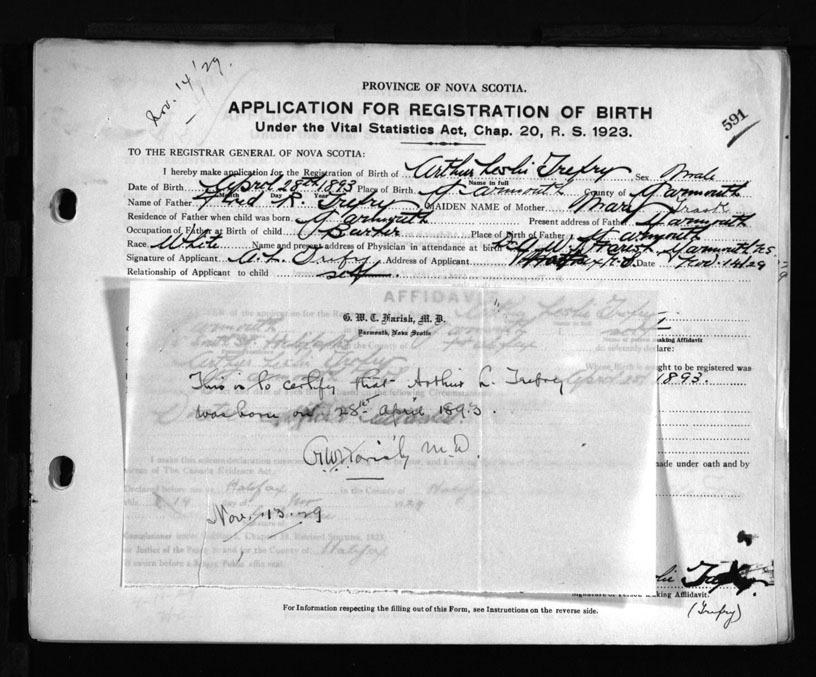 Nov. 14 '29.
PROVINCE OF NOVA SCOTIA.
APPLICATION FOR REGISTRATION OF BIRTH
591
Under the Vital Statistics Act, Chap. 20, R. S. 1923.
TO THE REGISTRAR GENERAL OF NOVA SCOTIA:
I hereby make application for the Registration of Birth of Arthur Leslie Trefry Sex Male
Name in full
Date of Birth April 28th 1893 Place of Birth Yarmouth County of Yarmouth
Month Day Year
Name of Father Fred R Trefry MAIDEN NAME of Mother Mary Trask
Residence of Father when child was born Yarmouth Present address of Father Yarmouth
Occupation of Father at Birth of child Barber Place of Birth of Father Yarmouth
Race White Name and present address of Physician in attendance at birth Yarmouth N.S.
Signature of Applicant A. L. Trefry Address of Applicant Halifax N.S. Date Nov. 14/29
Relationship of Applicant to child self
AFFIDAVIT
G. W. T. Farish, M. D.
Yarmouth, Nova Scotia
making Affidavit
lare:
ught to be registered was
1893.
This is to certify that Arthur L. Trefrey
was born on 28th April 1893.
GWTFarish M.D.
made under oath and by
Halifax in the County of Halifax
Nov. 13. 29
Halifax
slie Trefry
Signature of Person Making Affidavit.
For Information respecting the filling out of this Form, see Instructions on the reverse side.
(Trefry)